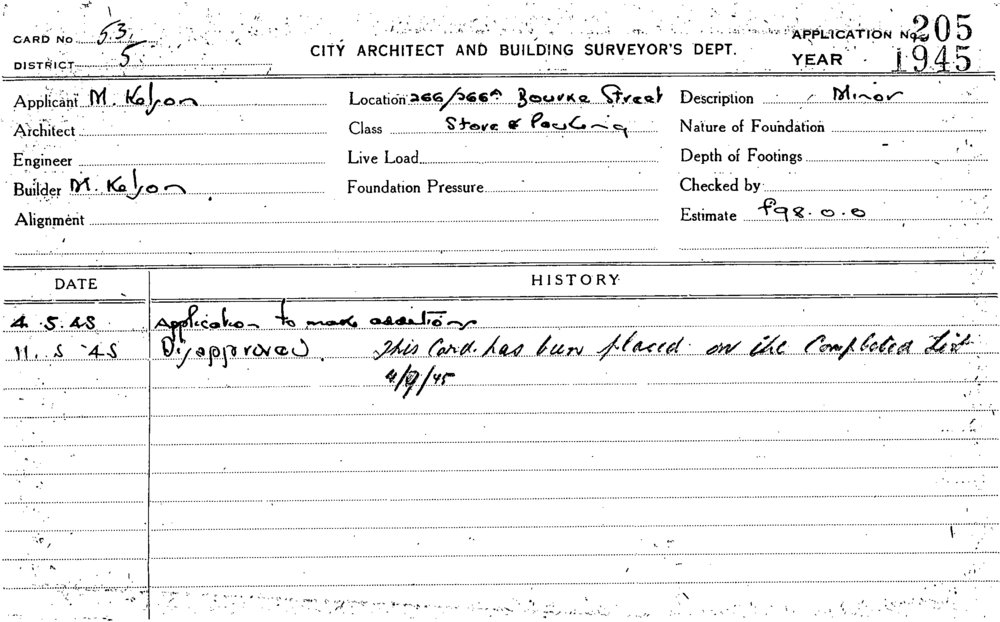 CARD No 53.
DISTRICT 5.
CITY ARCHITECT AND BUILDING SURVEYOR'S DEPT.
APPLICATION No. 205
YEAR 1945
Applicant M. Kelson
Location 266/266A Bourke Street
Description Minor
Architect
Class Store & Packing
Nature of Foundation
Engineer
Live Load
Depth of Footings
Builder M. Kelson
Foundation Pressure
Checked by
Alignment
Estimate £98.0.0
DATE HISTORY
4.5.45 Application to make additions
11.5.45 Disapproved. This Card has been placed on the Completed List
4/9/45